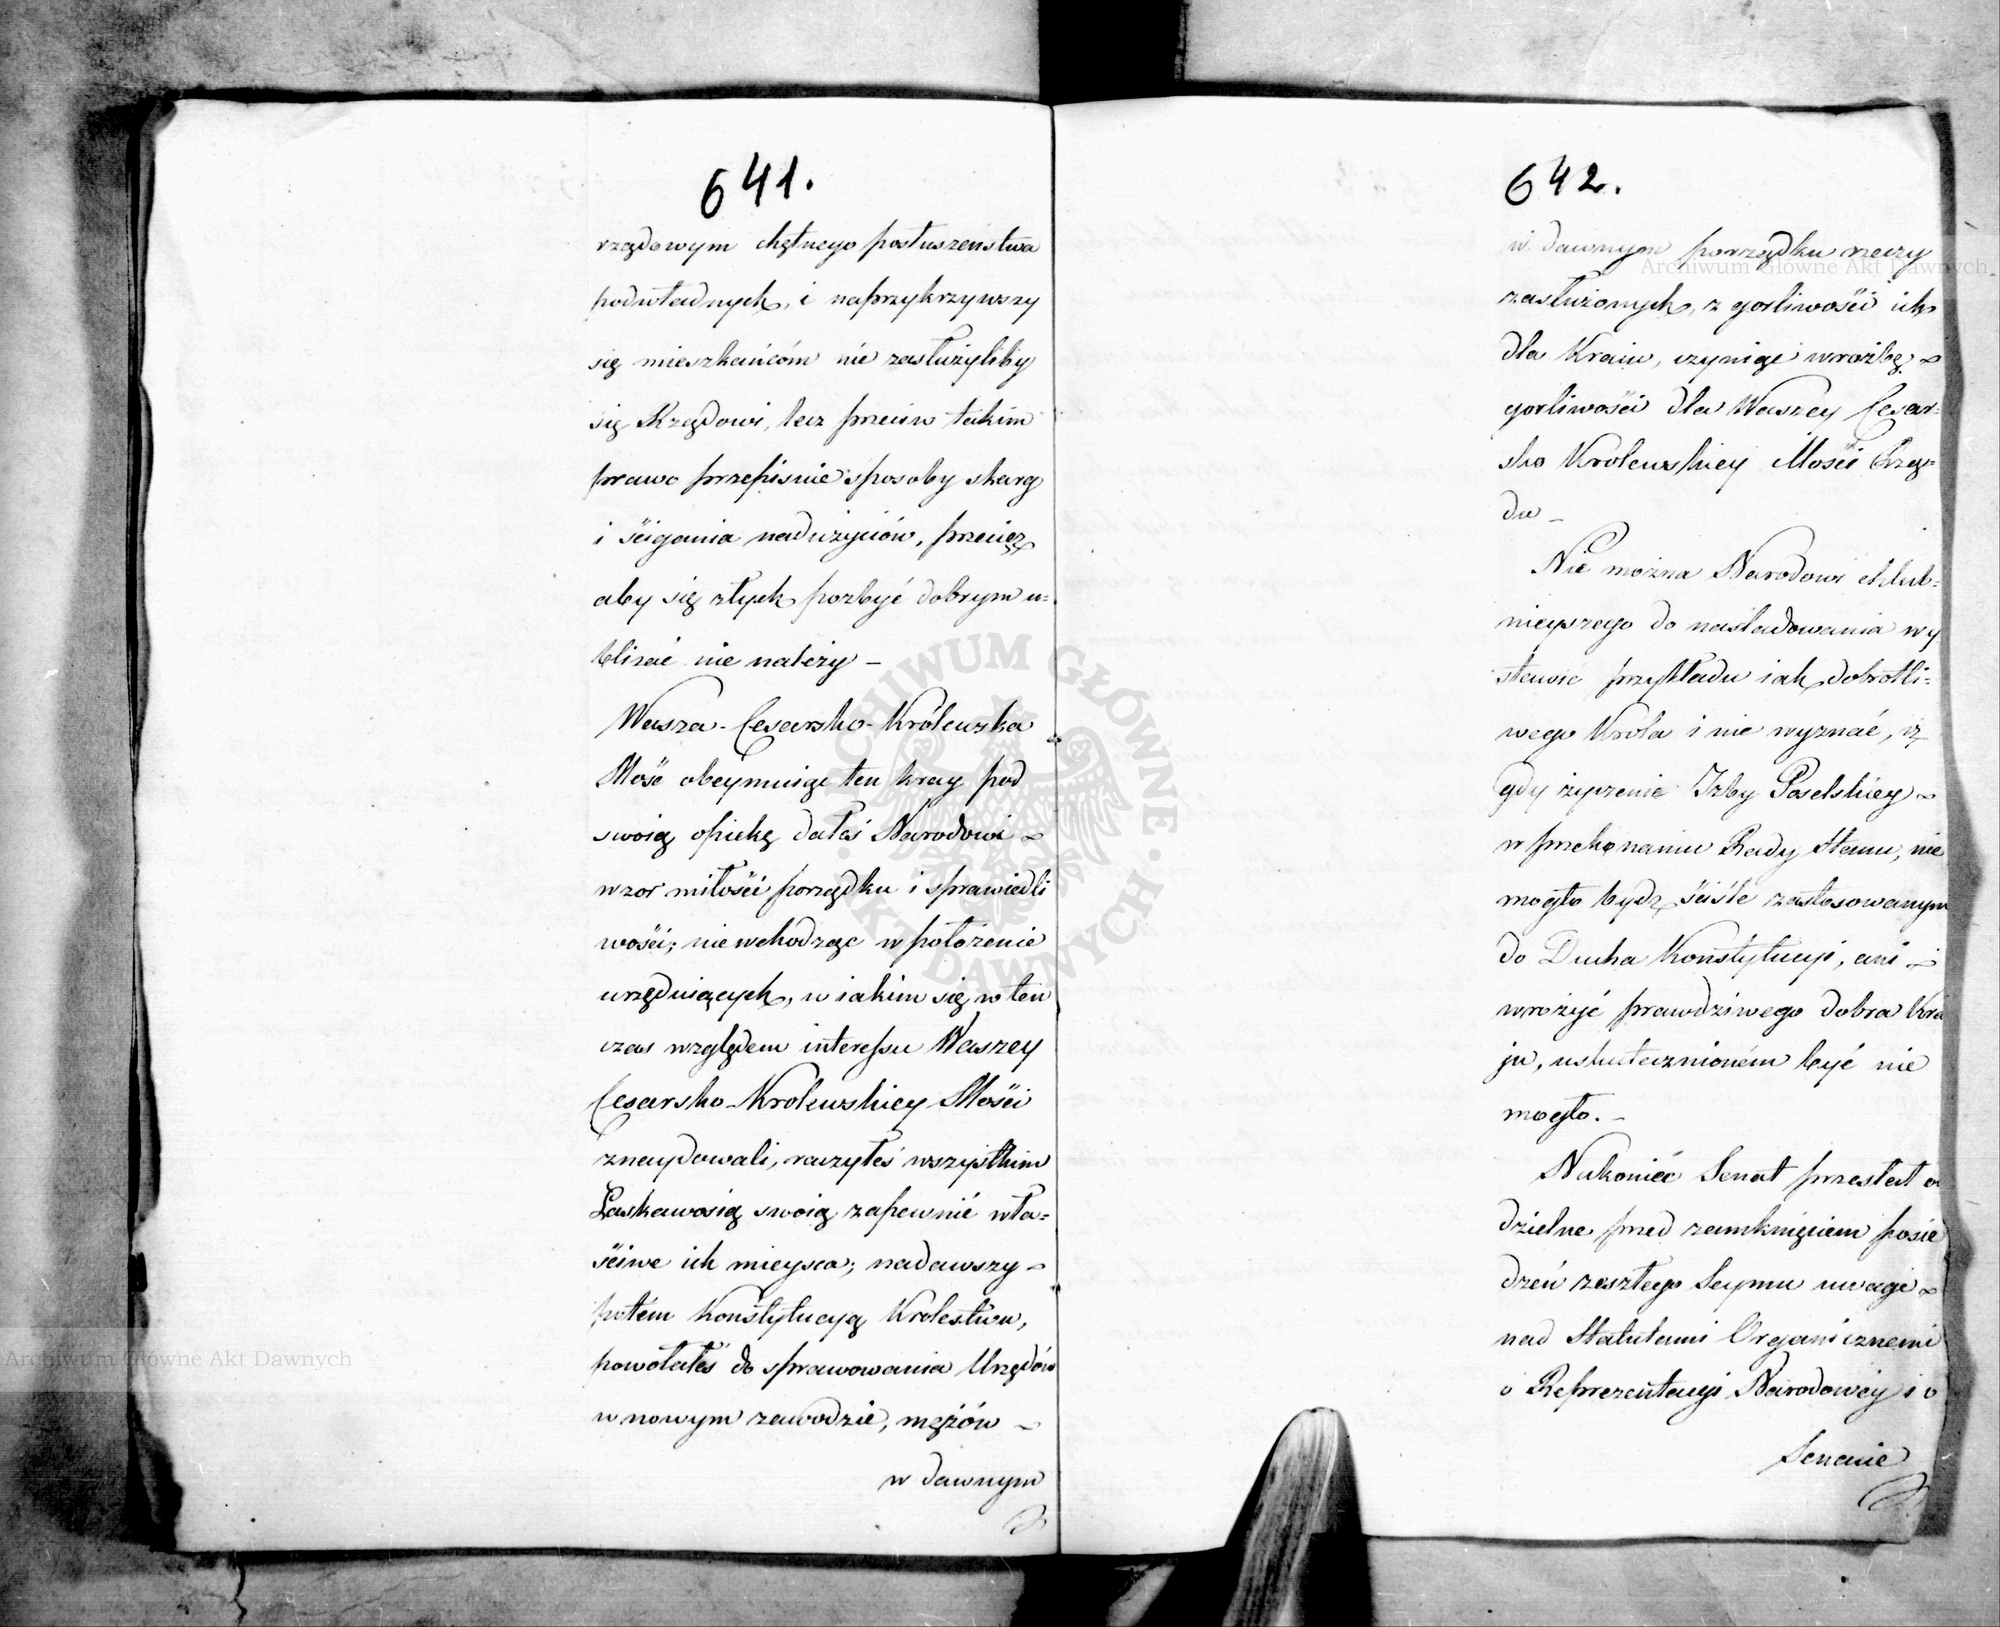 641.
rządowym chętnego posłuszeństwa
podwładnych, i naprzykrzywszy
się mieszkańcóm nie zasłużyliby
się Rządowi, lecz przeciw takim
prawo przepisuie sposoby skarg
i ścigania nadużyciów, przecięż
aby się złych pozbyć dobrym u=
bliżać nie należy –
Wasza-Cesarsko-Królewska
Mość obeymuiąc ten kray pod
swoią opiekę dałeś Narodowi
wzor miłości porządku i sprawiedli
wości; niewchodząc w położenie
urzęduiących, w iakim się w ten
czas względem interessu Waszey
Cesarsko-Krolewskiey Mości
znaydowali, raczyłeś wszystkim
Łaskawością swoią zapewnić wła=
ściwe ich mieysca; nadawszy
potém Konstytucyą Krolestwu,
powołałeś do sprawowania Urzędów
w nowym zawodzie, mężów
w dawnym
642.
w dawnym porządku rzeczy
zasłużonych, z gorliwości ich
dla Kraiu, czyniąc wrożbę
gorliwości dla Waszey Cesar=
sko Krolewskiey Mości Rzą=
du –
Nie można Narodowi chlub=
nieyszego do nasladowania wy
stawić przykładu iak dobrotli=
wego Krola i nie wyznać, iż
gdy życzenie Izby Poselskiey
w przekonaniu Rady Stanu, nie
mogło bydź ściśle zastosowanym
do Ducha Konstytucyi, ani
wrożyć prawdziwego dobra Kra
ju, uskutecznioném być nie
mogło. –
Nakoniec Senat przesłał od
dzielne przed zamknięciem posie
dzeń zeszłego Seymu uwagi
nad Statutami Organicznemi
o Reprezentacyi Narodowéy i o
Senacie
Archiwum Główne Akt Dawnych
Archiwum Główne Akt Dawnych
ARCHIWUM GŁÓWNE · AKT DAWNYCH ·